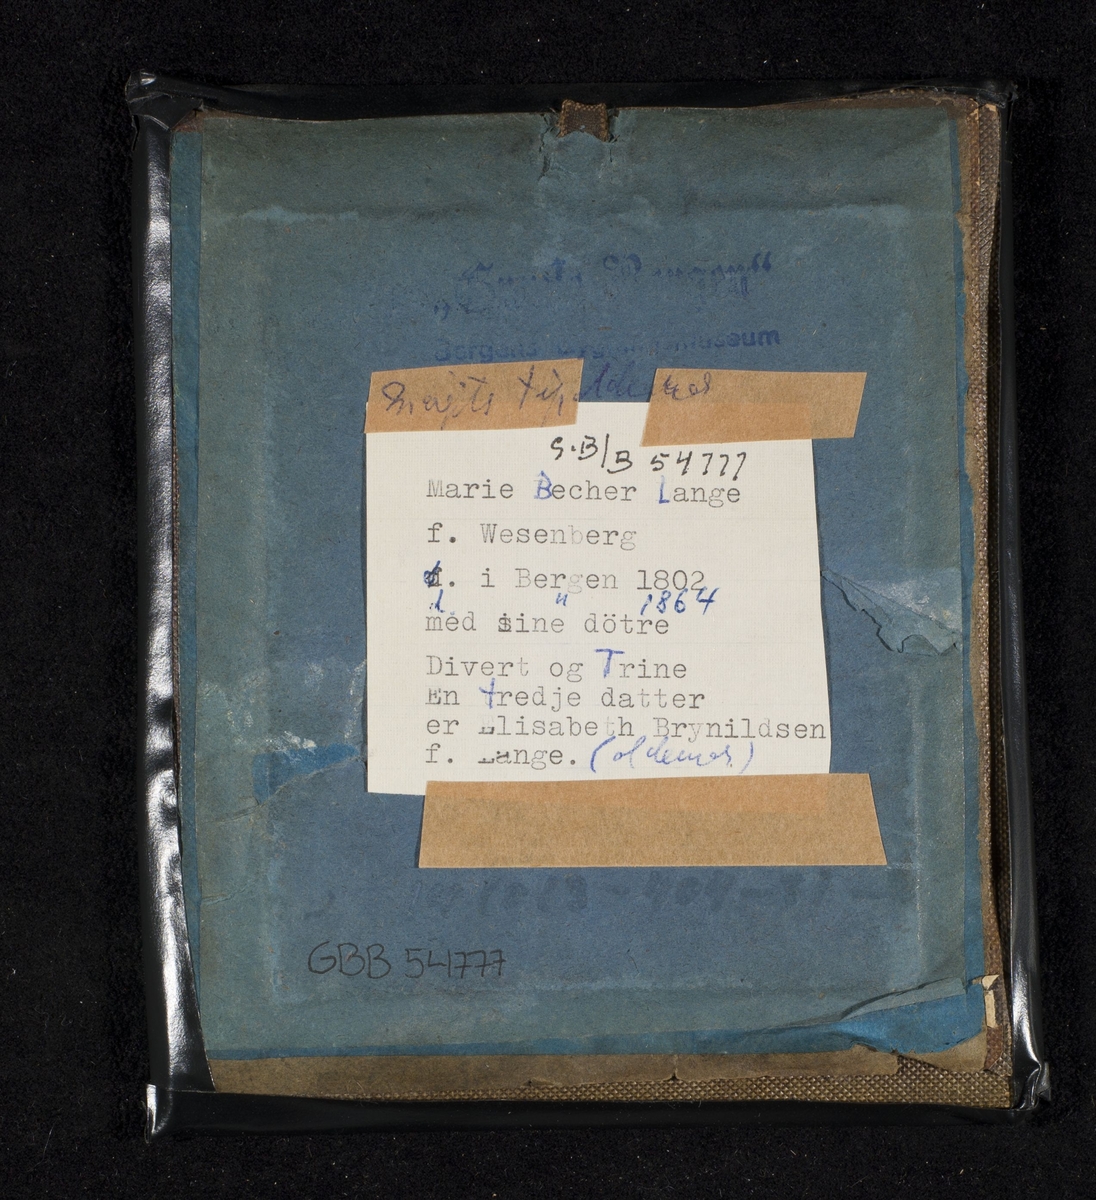 Bergens museum
oldemor
G.B/B 54777
Marie Becher Lange
f. Wesenberg
f. i Bergen 1802
d. " 1864
med sine dötre
Divert og Trine
En tredje datter
er Elisabeth Brynildsen
f. Lange. (oldemor)
GBB 54777